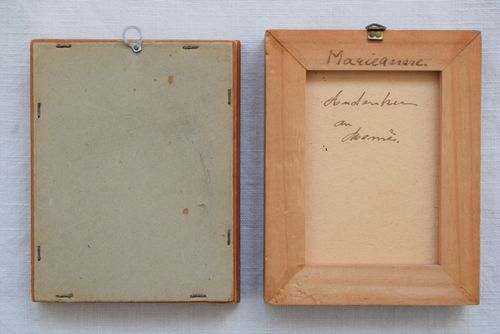 Marieanne.
Andenken
an
Mamá.